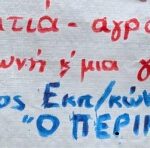 τιά - αγρο
ωνή ή μια γ
ος Εκπ/κών
"Ο ΠΕΡΙΚ